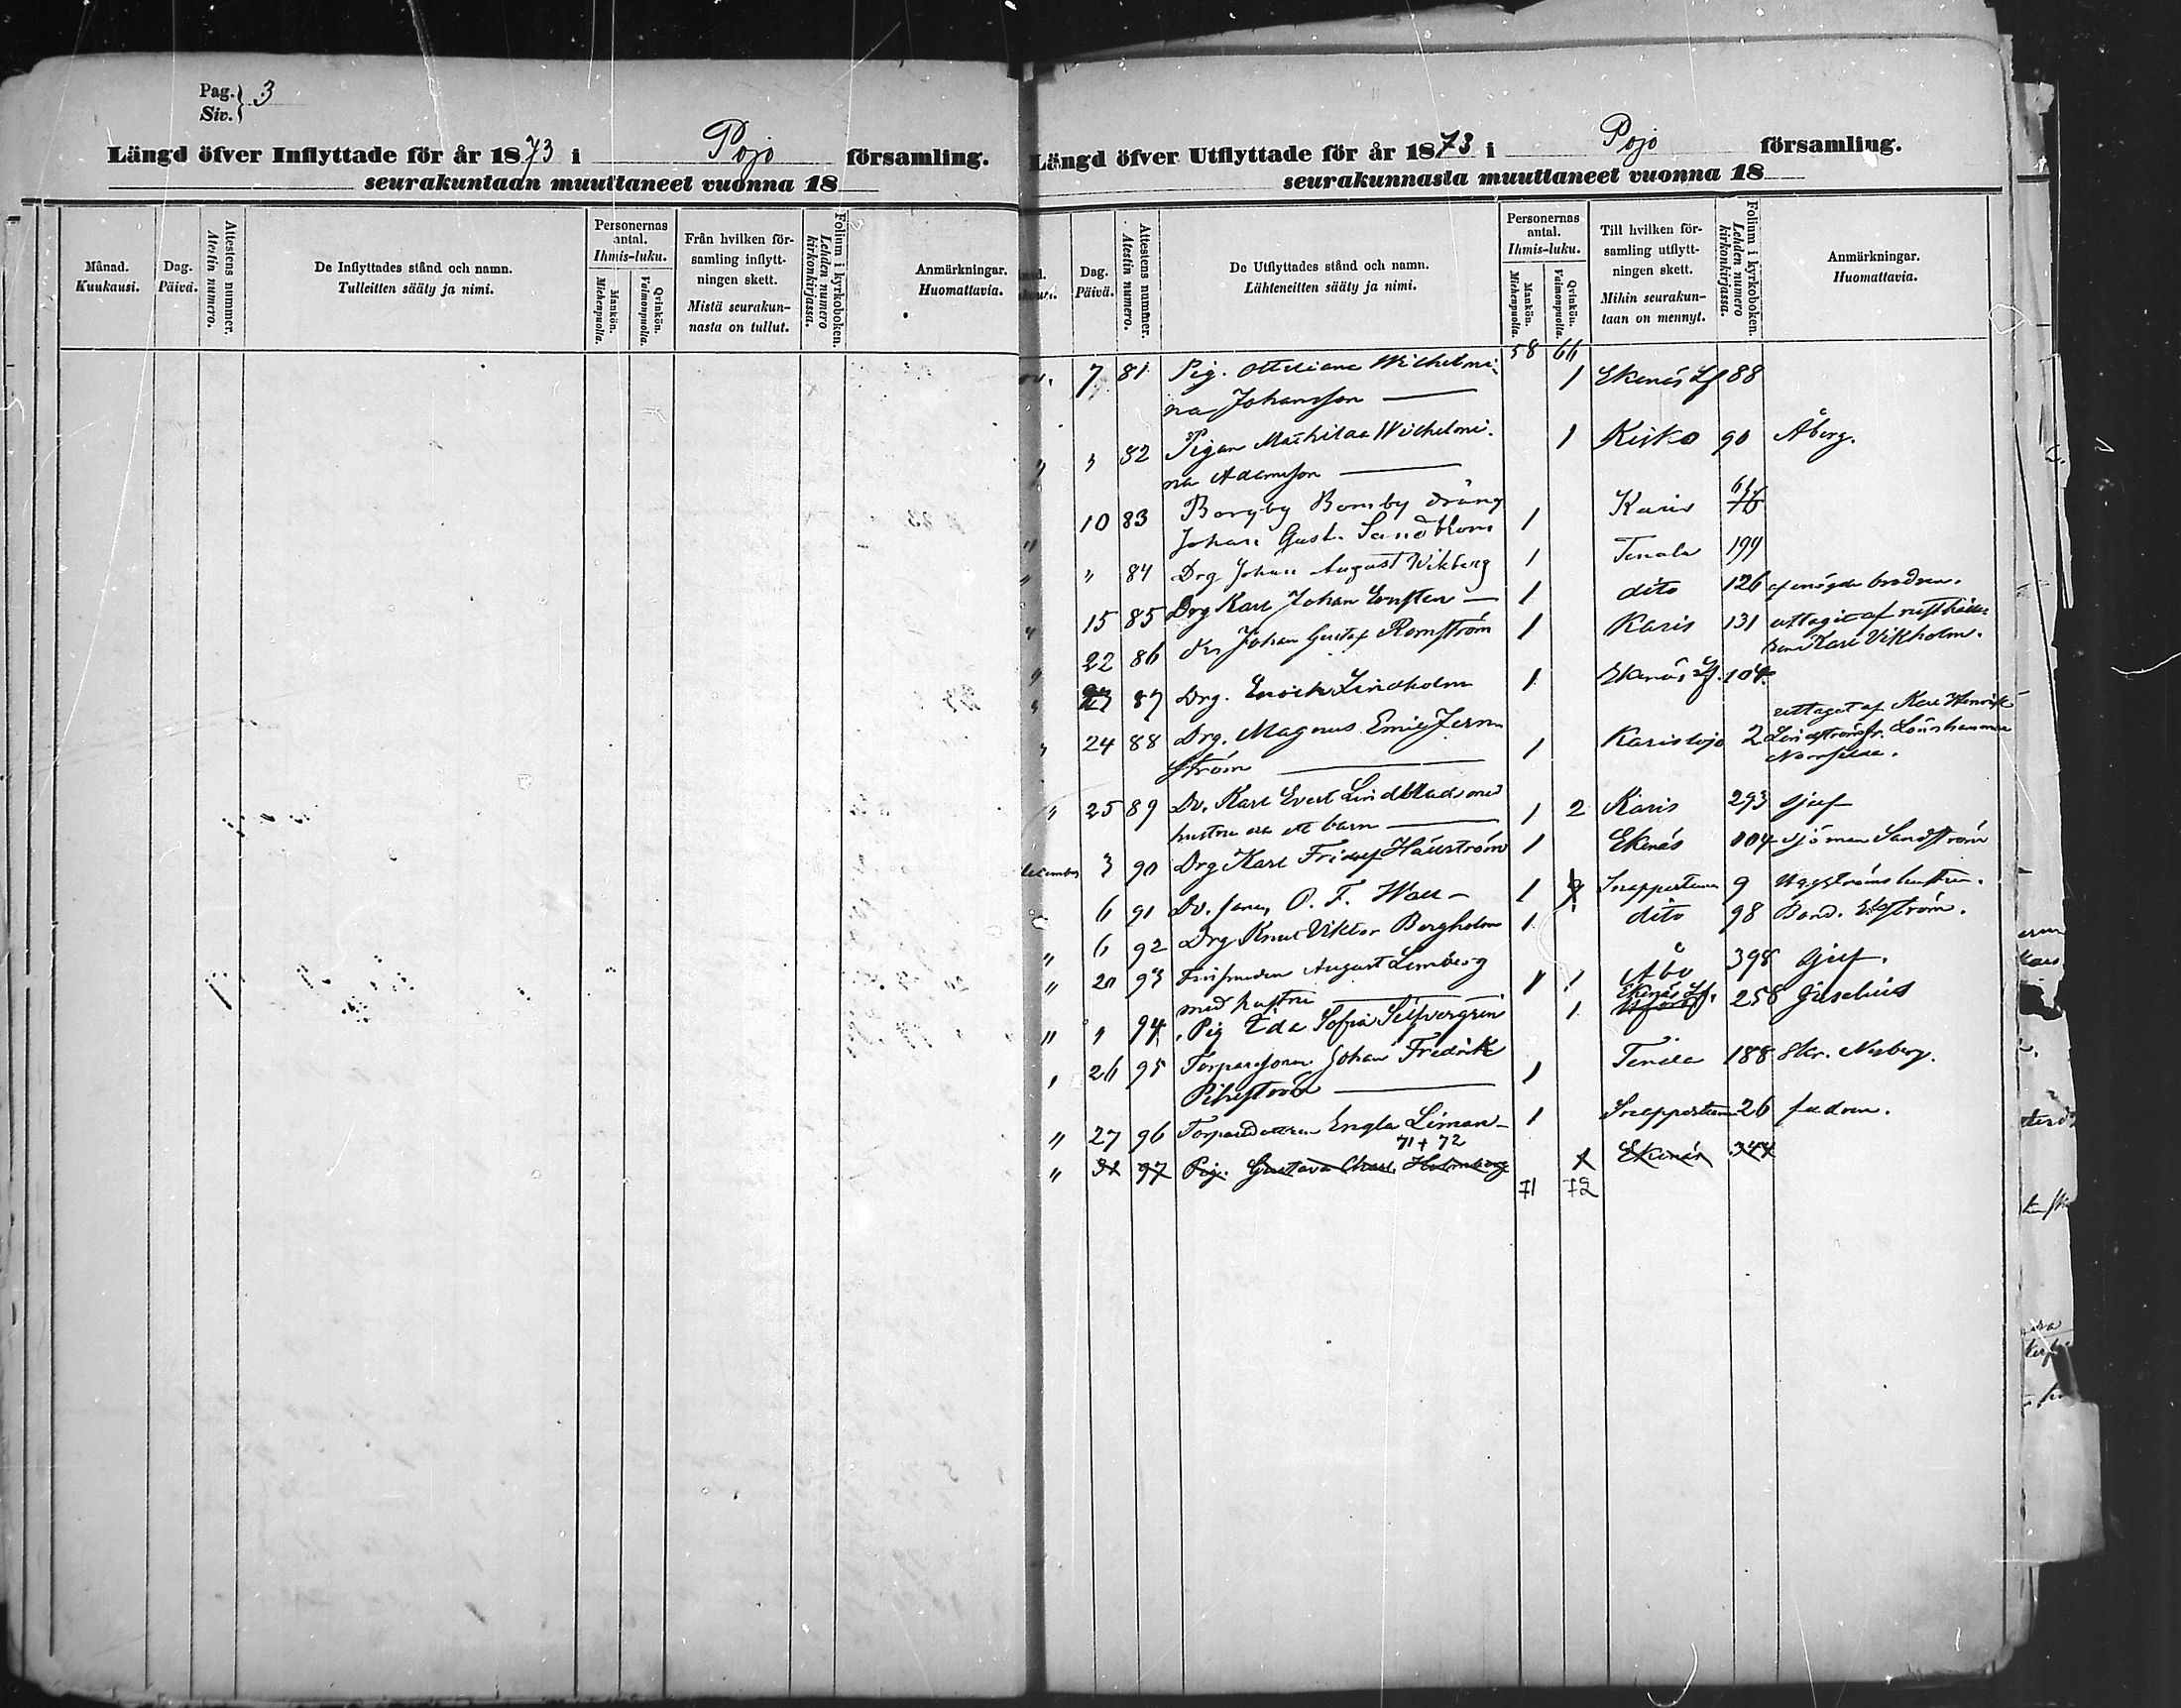 Pag. 3
Siv.
Längd öfver Inflyttade för år 1873 i Pojo församling.
seurakuntaan muuttaneet vuonna 18
Månad.
Kuukausi.
Dag.
Päivä.
Attestens nummer.
Atestin numero.
De Inflyttades stånd och namn.
Tulleitten sääty ja nimi.
Personernas
antal.
Ihmis-luku.
Mankön.
Miehenpuolia.
Qvinkön.
Vaimonpuolia.
Från hvilken för-
samling inflytt-
ningen skett.
Mistä seurakun-
nasta on tullut.
Folium i kyrkoboken.
Lehden numero
kirkonkirjassa.
Anmärkningar.
Huomattavia.
Längd öfver Utflyttade för år 1873 i Pojo församling.
seurakunnasta muuttaneet vuonna 18
Dag.
Päivä.
Attestens nummer.
Atestin numero.
De Utflyttades stånd och namn.
Lähteneitten sääty ja nimi.
Personernas
antal.
Ihmis-luku.
Mankön.
Miehenpuolia.
Qvinkön.
Vaimonpuolia.
Till hvilken för-
samling utflytt-
ningen skett.
Mihin seurakun-
taan on mennyt.
Folium i kyrkoboken.
Lehden numero
kirkonkirjassa.
Anmärkningar.
Huomattavia.
58 66
7 81 Pig. Ottiliana Wilhelmi- 1 Ekenäs Lf 88
na Johansson
" 82 Pigan Mathilda Wilhelmi- 1 Kisko 90 Åberg.
na Adamsson
" 10 83 Boryby Bomby dräng 1 Karis
Johan Gust. Sandblom
" " 84 Drg Johan August Wikberg 1 Tenala 199
" 15 85 Drg Karl Johan Ernsten 1 dito 126 brodren.
" 22 86 Johan Gustaf Romström 1 Karis 131 uttagit af
Karl Vikholm.
" 87 Drg. Enoch Lindholm 1 Ekenäs Lf. 104
" 24 88 Drg. Magnus Emil Jern- 1 Karislojo 2 uttaget af Karl Henrik
ström Lindström
" 25 89 Dr. Karl Evert Lindblad med 1 2 Karis 293 sjelf
hustru och ett barn
december 3 90 Drg Karl Fridolf Hällström 1 Ekenäs 104 sjöman Sandström
6 91 O. F. Wall 1 Snappertuna 9 hustru.
" 6 92 Drg Knut Viktor Bergholm 1 dito 98 Bond. Ekström.
" 20 93 August Lemberg 1 1 Åbo 398 Sjelf.
med hustru
" " 94 Pig Ida Sofia Silfvergren 1 Ekenäs Lf. 258 Giselius
" 26 95 Torparesonen Johan Fredrik 1 Tenala 188
" 27 96 Torpardottren Engla Liman 1 Snappertuna 26 fadren.
71 + 72
" 31 97 Pig. Gustava Charl. Holmberg 1 Ekenäs 344
71 72